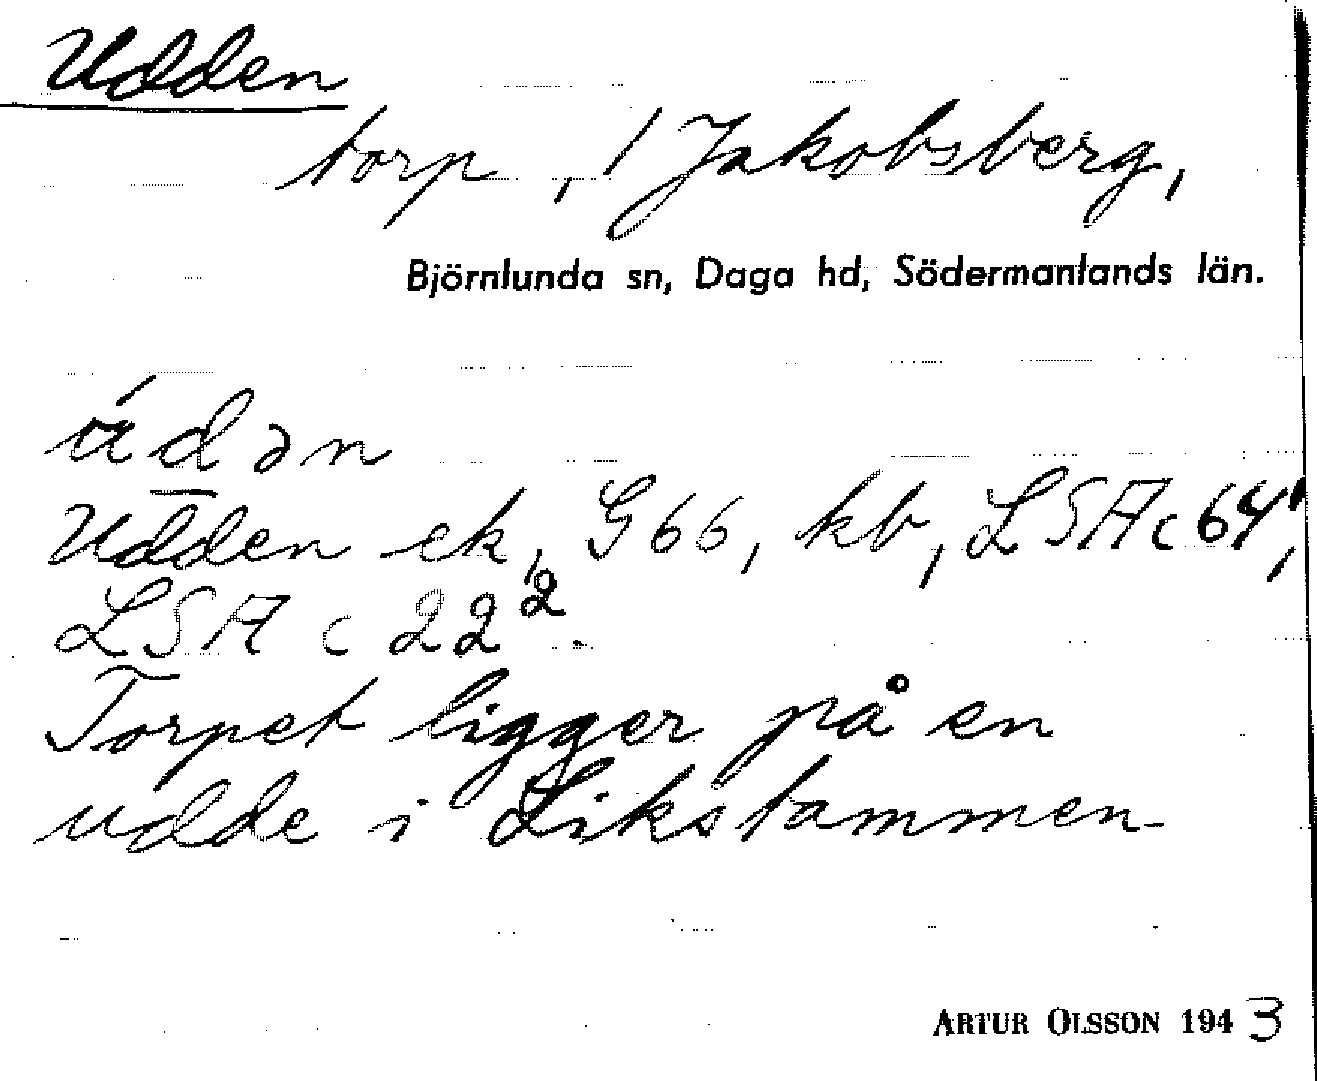 Udden
torp, / Jakobsberg,
Björnlunda sn, Daga hd, Södermanlands län.
ú̀d̲ən
Udden ek, G66, kb, LSA c 64¹,
LSA c 22².
Torpet ligger på en
udde i Likstammen
ARTUR OLSSON 1943